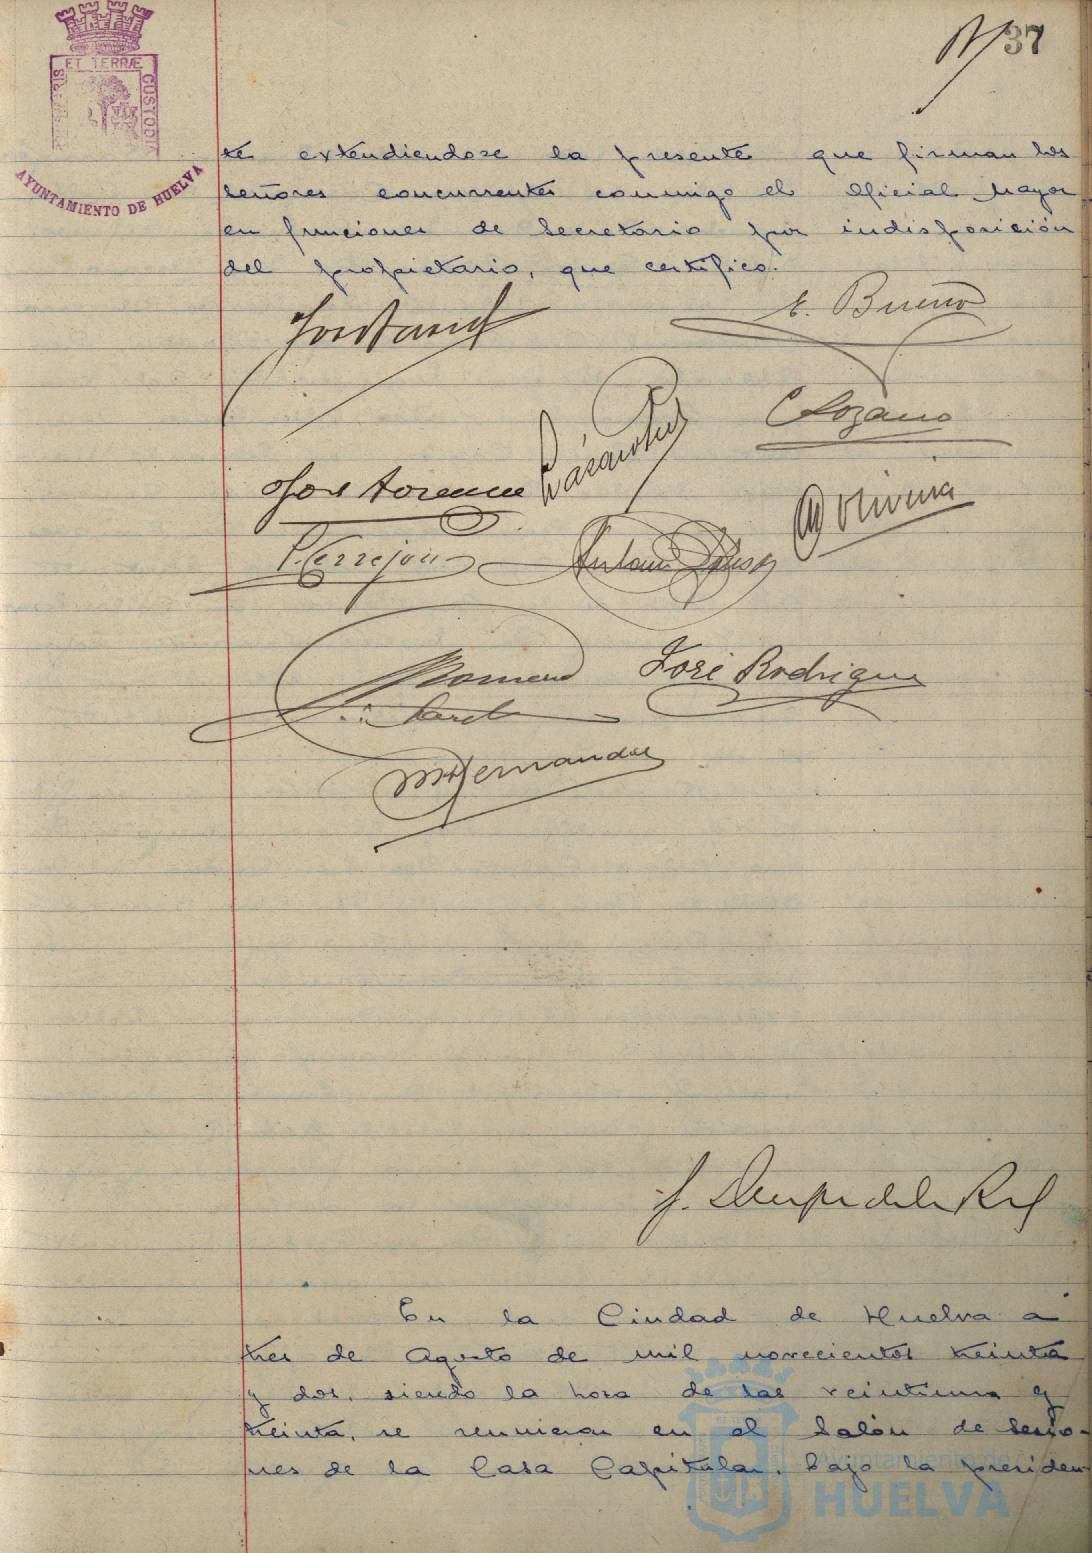 ET TERRÆ
CUSTODIA
AYUNTAMIENTO DE HUELVA
37
te extendiendose la presente que firman los
señores concurrentes conmigo el Oficial Mayor
en funciones de Secretario por indisposición
del propietario, que certifico.
E. Bueno
C Lozano
José
Oliveira
P. Cerrejón
Antonio
Romero
José Rodriguez
M Hernandez
En la Ciudad de Huelva a
tres de Agosto de mil novecientos treinta
y dos, siendo la hora de las veintiuna y
treinta, se reunieron en el Salón de Sesio-
nes de la Casa Capitular, bajo la presiden
Ayuntamiento de
HUELVA